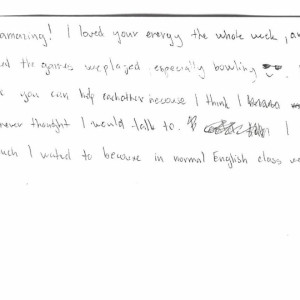 amazing! I loved your energy the whole week, an
the games we played especially bowling
you can help eachother because I think I
never thought I would talk to. I
uch I wated to because in normal English class we